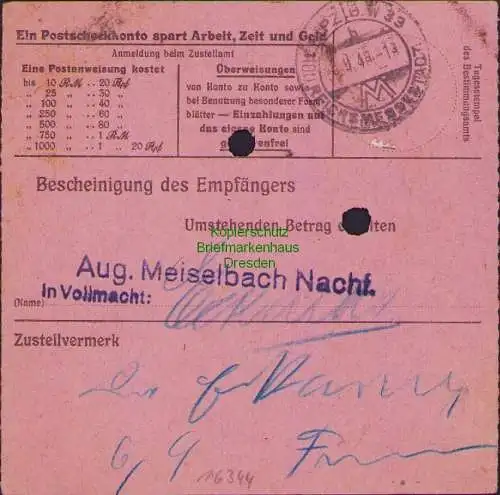 Ein Postscheckkonto spart Arbeit, Zeit und Geld
Anmeldung beim Zustellamt
Eine Postanweisung kostet
bis 10 RM .. 20 Rpf
„ 25 „ .. 30 „
„ 100 „ .. 40 „
„ 250 „ .. 60 „
„ 500 „ .. 80 „
„ 750 „ .. 1 RM
„ 1000 „ .. 1 „ 20 Rpf
Überweisungen
von Konto zu Konto sowie
bei Benutzung besonderer Form-
blätter — Einzahlungen auf
das eigene Konto sind
gebührenfrei
LEIPZIG W 33
REICHSMESSESTADT
Tagesstempel
des Bestimmungsamts
Bescheinigung des Empfängers
Umstehenden Betrag erhalten
Kopierschutz
Briefmarkenhaus
Dresden
Aug. Meiselbach Nachf.
In Vollmacht:
(Name)
Zustellvermerk
6/9
16344